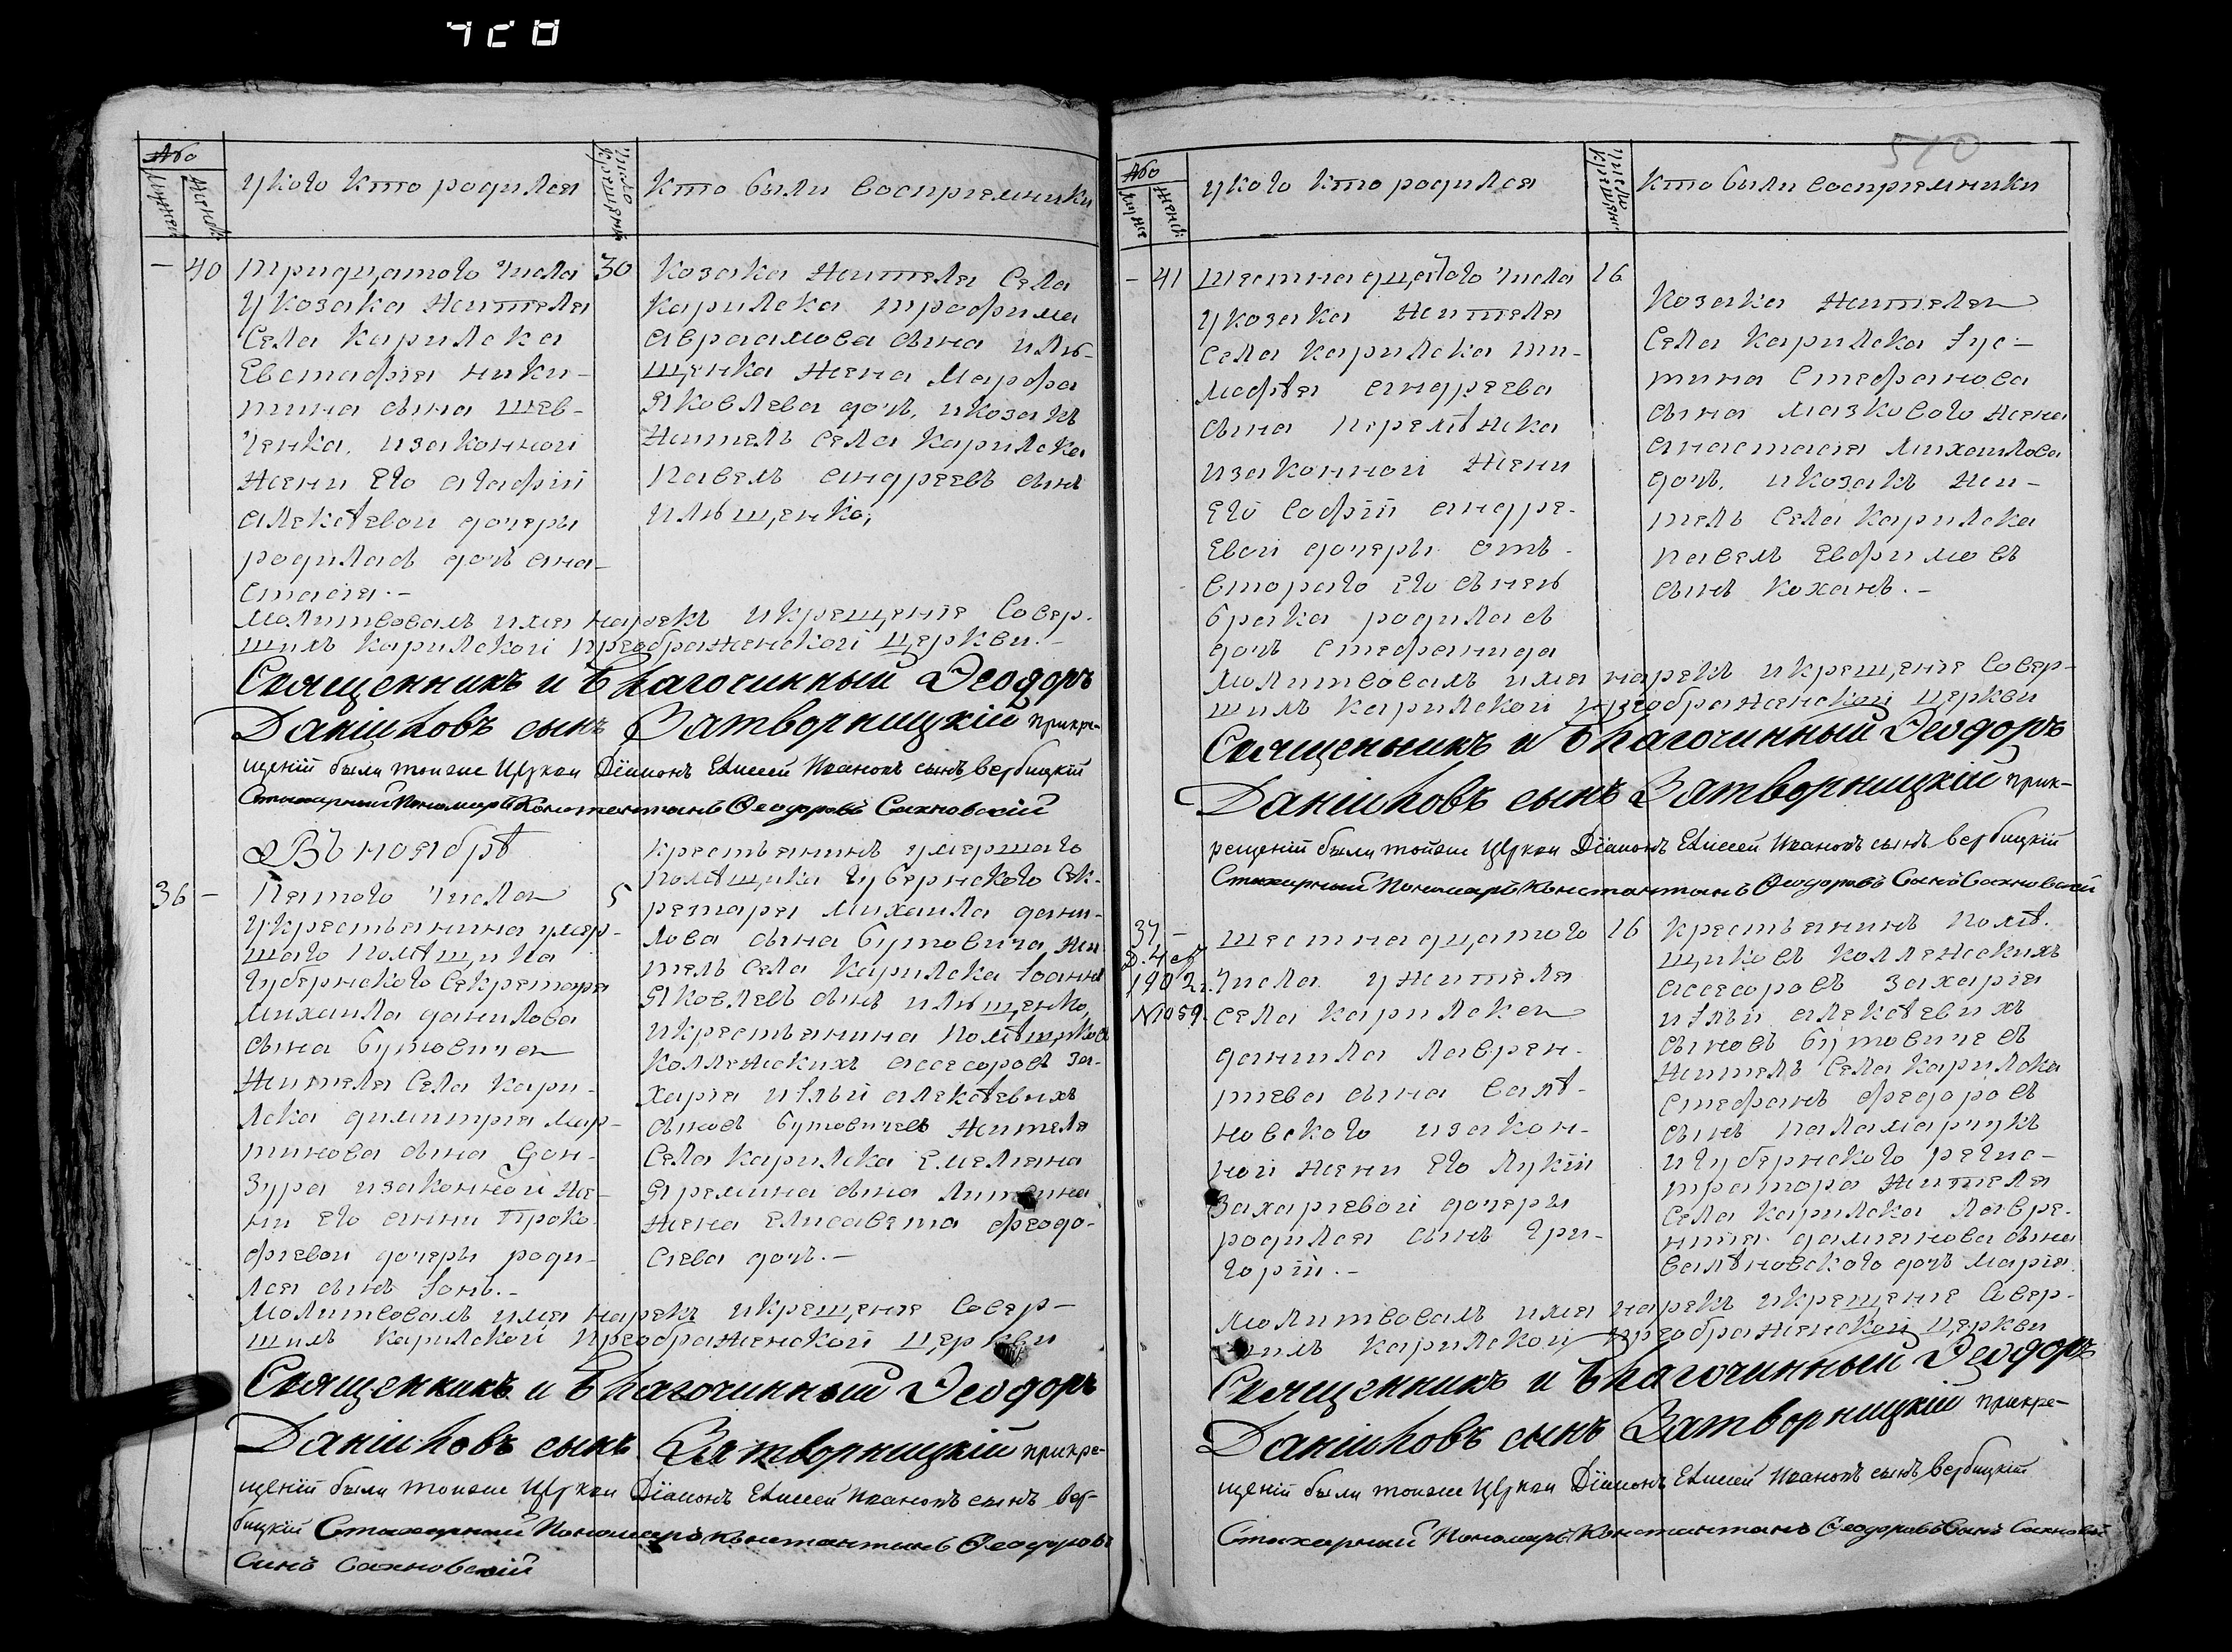 510
Або
Мужеск
Женск
У кого кто родился
Число крещения
Кто были восприемники
— 40
Тридцатого числа
У козака жителя
Села Карилска
Евстафія Ники-
тина сына Шев-
ченка, и законной
жены его Агафіи
Алексѣевои дочеры
родилась дочь Ана-
стасія.-
30
Козака жителя Села
Карилска Трофима
Авраамова сына Илю-
щенка жена Марфа
Яковлева дочь, и козакъ
житель Села Карилска
Павелъ Андреевъ сынъ
Илющенко,
Молитвовалъ имя нарекъ и крещеніе совер-
шилъ Карилской Преображенской Церкви.-
Священникъ и Благочинный Ѳеодоръ
Даніиловъ сынъ Затворницкій прикре-
щеніи были тоиже Церкви Діаконъ Елисей Ивановъ сынъ Вербицкій
Стихарный Пономарь Константинъ Ѳеодоровъ Сахновскій
Въ ноябрѣ
36 —
Пятого числа
У крестьянина умер-
шаго помѣщика
Губернского Секретаря
Михаила Данилова
сына Бутовича
жителя Села Кари-
лска Димитрія Мар-
тинова сына Ган-
зура и законной же-
ны его Анны Проко-
фіевои дочеры роди-
лся сынъ Іонъ.-
5
Крестьянинъ умершаго
помѣщика Губернского Сек-
ретаря Михаила Дани-
лова сына Бутовича, жи-
тель Села Карилска Іоаннъ
Яковлевъ сынъ Илющенко,
и крестьянина помѣщиковъ
Коллежскихъ ассесоровъ За-
харія и Ільи Алексѣевыхъ
сыновъ Бутовичевъ жителя
Села Карилска Емеліана
Яремина сына Литвина
жена Елисавета Феодо-
сіева дочь.-
Молитвовалъ имя нарекъ и крещеніе Совер-
шилъ Карилской Преображенской Церкви
Священникъ и Благочинный Ѳеодоръ
Даніиловъ сынъ Затворницкій прикре-
щеніи были тоиже Церкви Діаконъ Елисей Ивановъ сынъ Вер-
бицкій Стихарный Пономарь Константинъ Ѳеодоровъ
Синъ Сахновскій
Або
Муже
Женск
У кого кто родился
Число крещения
Кто были восприемники
— 41
Шестнадцатого числа
У козака жителя
Села Карилска Ти-
мофѣя Андреева
сына
и законной жены
его Софіи Андре-
евои дочеры отъ
второго его съ нею
брака родилась
дочь Стефанида
16
Козака жителя
Села Карилска Іус-
тина Стефанова
сына Мазкового жена
Анастасія Михаилова
дочь, и козакъ жи-
тель Села Карилска
Павелъ Евфимовъ
сынъ Коханъ.-
Молитвовалъ имя нарекъ и крещеніе Совер-
шилъ Карилской Преображенской Церкви
Священникъ и Благочинный Ѳеодоръ
Даніиловъ сынъ Затворницкій прик-
рещеніи были тойже Церкви Діаконъ Елисей Ивановъ сынъ Вербицкій
Стихарный Пономарь Константинъ Ѳеодоровъ Синъ Сахновскій
37 —
1902 г.
№1059.
Шестнадцатого
числа у жителя
Села Карилска
Данила Лаврен-
тіева сына Салѣ-
новского и закон-
ной жены его Лукіи
Захаріевой дочеры
родился сынъ Гри-
горій.-
16
Крестьянинъ помѣ-
щиковъ Коллежскихъ
ассесоровъ Захарія
и Ільи Алексѣевихъ
сыновъ Бутовичевъ
житель Села Карилска
Стефанъ Федоровъ
сынъ Паламарчукъ
и Губернского Регис-
тратора жителя
Села Карилска Лавре-
нтія Даміанова сына
Салѣновского дочь Марія.
Молитвовалъ имя нарекъ и крещеніе Совер-
шилъ Карилской Преображенской Церкви
Священникъ и Благочинный Ѳеодоръ
Даніиловъ сынъ Затворницкій прикре-
щеніи были тоиже Церкви Діаконъ Елисей Ивановъ сынъ Вербицкій
Стихарный Пономарь Константинъ Ѳеодоровъ Синъ Сахновскій